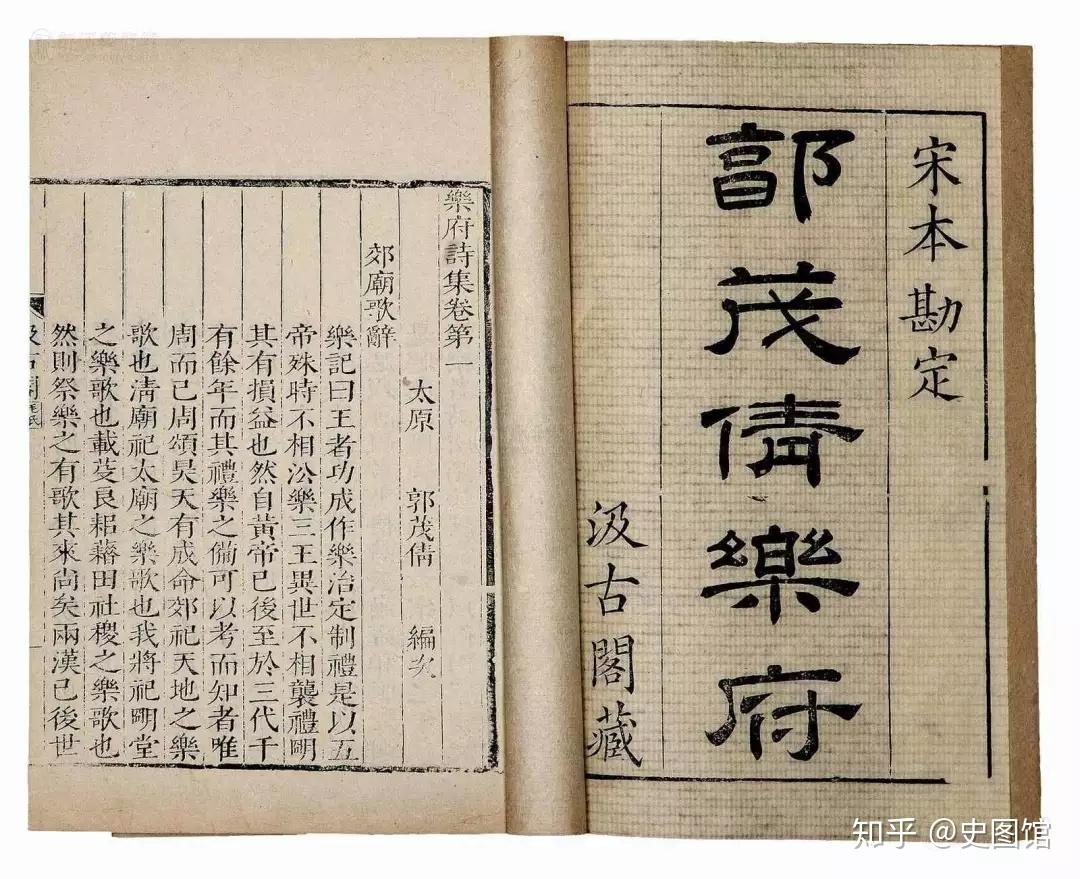 宋本勘定
郭茂倩樂府
汲古閣藏
樂府詩集卷第一
太原 郭茂倩 編次
郊廟歌辭
樂記曰王者功成作樂治定制禮是以五
帝殊時不相沿樂三王異世不相襲禮明
其有損益也然自黃帝已後至於三代千
有餘年而其禮樂之備可以考而知者唯
周而已周頌昊天有成命郊祀天地之樂
歌也清廟祀太廟之樂歌也我將祀明堂
之樂歌也載芟良耜藉田社稷之樂歌也
然則祭樂之有歌其來尚矣兩漢已後世
汲古閣 毛氏
知乎 @史图馆